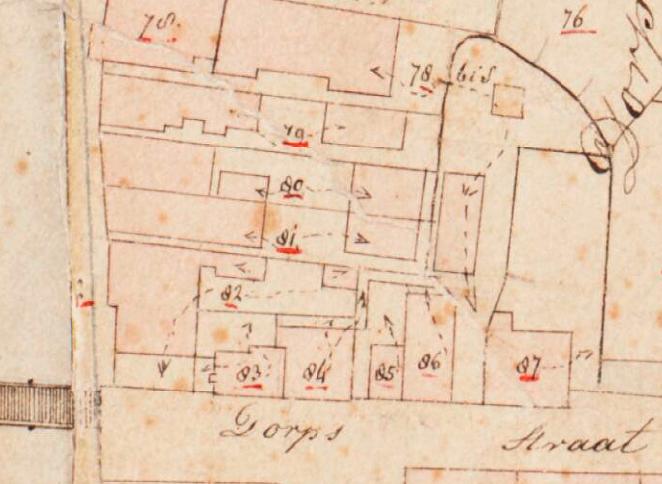 78.
76
78 bis
79
80
81
82
83
84
85
86
87
Dorps Straat
Dorp